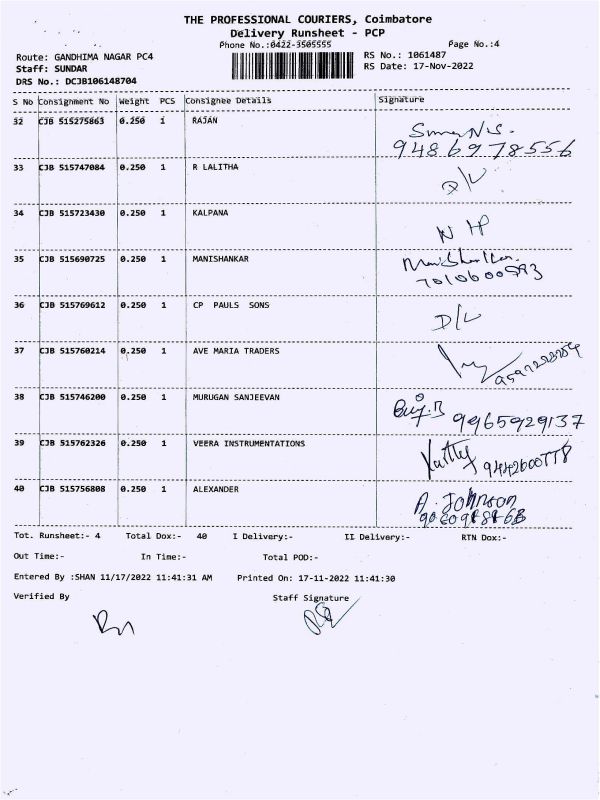 THE PROFESSIONAL COURIERS, Coimbatore
Delivery Runsheet - PCP
Phone No.:0422-3505555 Page No.:4
Route: GANDHIMA NAGAR PC4 RS No.: 1061487
Staff: SUNDAR RS Date: 17-Nov-2022
DRS No.: DCJB106148704
S No Consignment No Weight PCS Consignee Details Signature
32 CJB 515275863 0.250 1 RAJAN
9486978556
33 CJB 515747084 0.250 1 R LALITHA D/L
34 CJB 515723430 0.250 1 KALPANA
35 CJB 515690725 0.250 1 MANISHANKAR
36 CJB 515769612 0.250 1 CP PAULS SONS D/L
37 CJB 515760214 0.250 1 AVE MARIA TRADERS
38 CJB 515746200 0.250 1 MURUGAN SANJEEVAN
9965929137
39 CJB 515762326 0.250 1 VEERA INSTRUMENTATIONS
40 CJB 515756808 0.250 1 ALEXANDER
A. Johnson
Tot. Runsheet:- 4 Total Dox:- 40 I Delivery:- II Delivery:- RTN Dox:-
Out Time:- In Time:- Total POD:-
Entered By :SHAN 11/17/2022 11:41:31 AM Printed On: 17-11-2022 11:41:30
Verified By Staff Signature